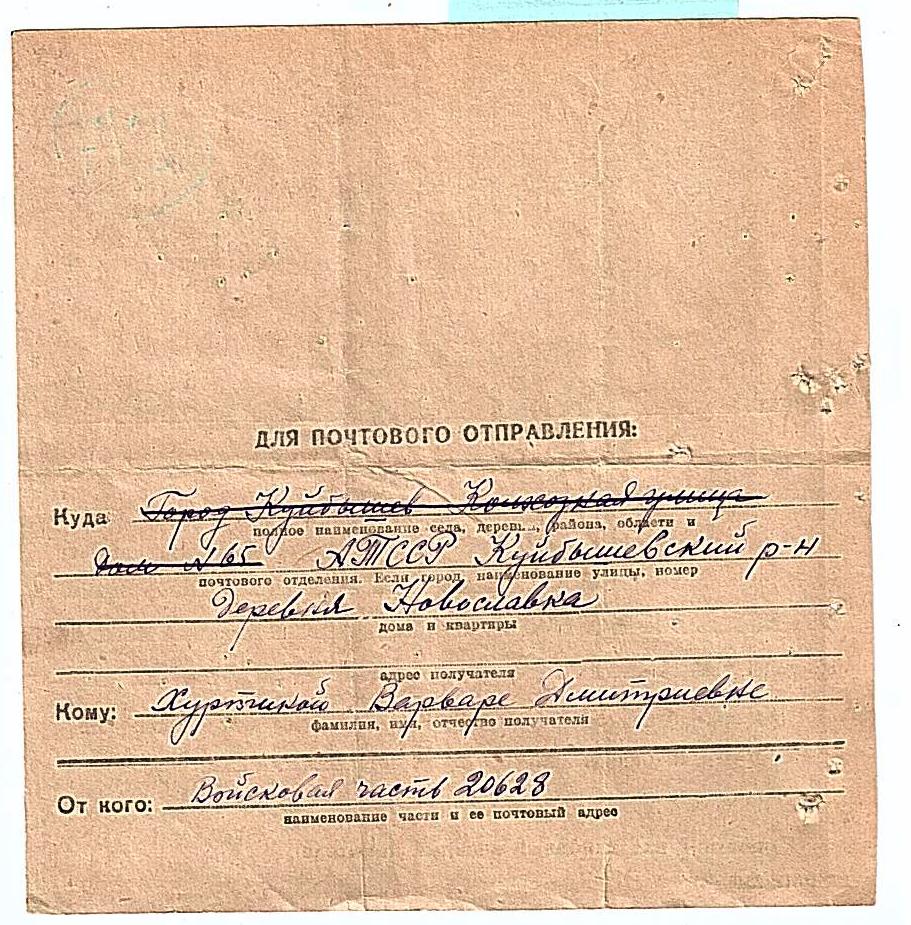 ДЛЯ ПОЧТОВОГО ОТПРАВЛЕНИЯ:
Куда Город Куйбышев Колхозная улица
полное наименование села, дерев..., района, области и
дом №65 АТССР Куйбышевский р-н
почтового отделения. Если город, наименование улицы, номер
деревня Новославка
дома и квартиры
адрес получателя
Кому: Варваре Дмитриевне
фамилия, имя, отчество получателя
От кого: Войсковая часть 20628
наименование части и ее почтовый адрес